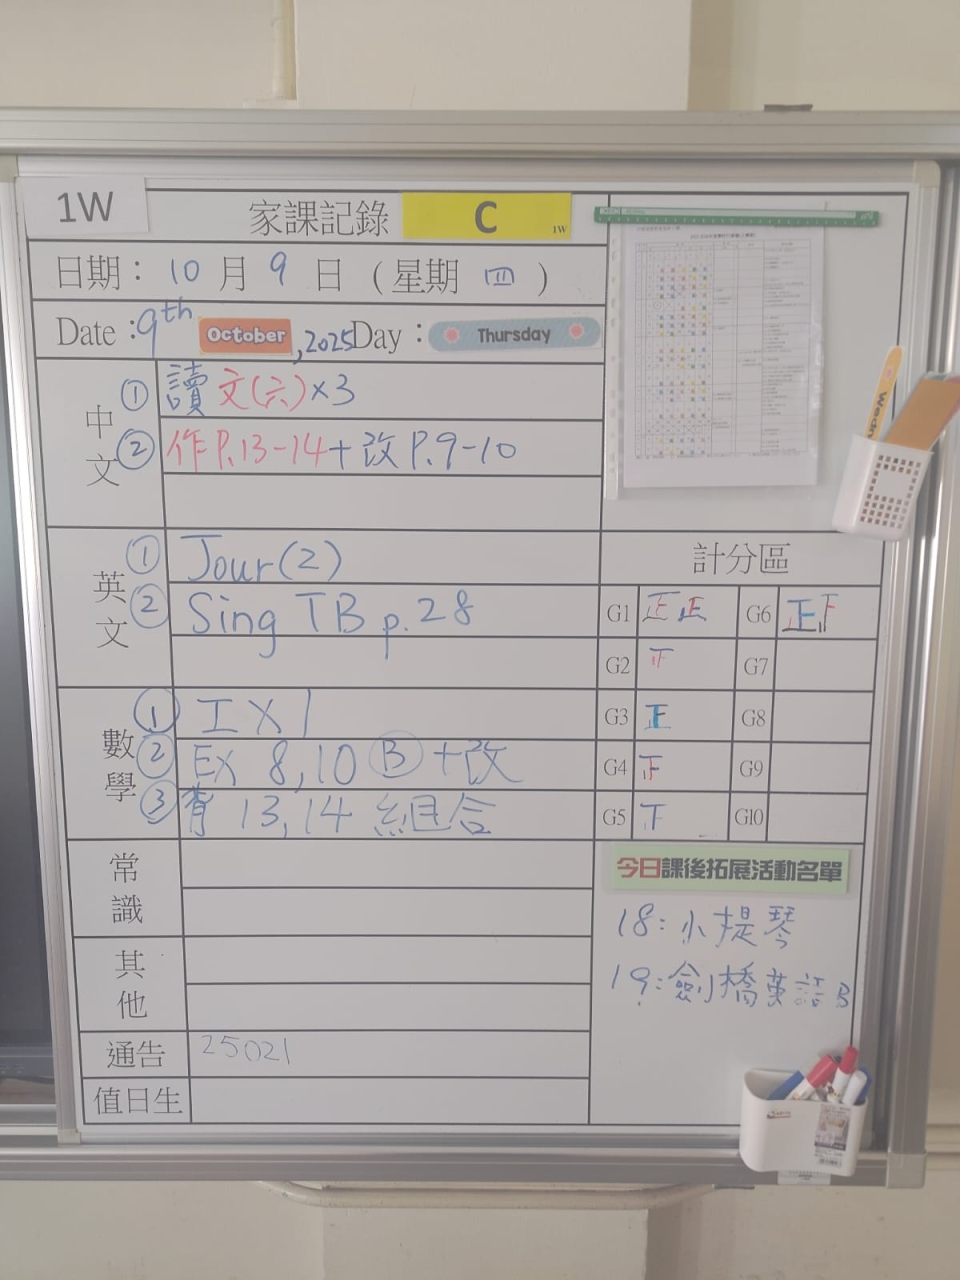 1W
家課記錄 C 1W
日期：10月9日（星期四）
Date：9th October, 2025 Day：Thursday
中文
① 讀文(六)×3
② 作P.13-14+改P.9-10
英文
① Jour(2)
② Sing TB p.28
數學
① 工X1
② EX 8,10 Ⓑ +改
③ 背 13,14 組合
常識
其他
通告 25021
值日生
計分區
G1 正正 G6 正
G2 G7
G3 正 G8
G4 G9
G5 G10
今日課後拓展活動名單
18：小提琴
19：劍橋英語B